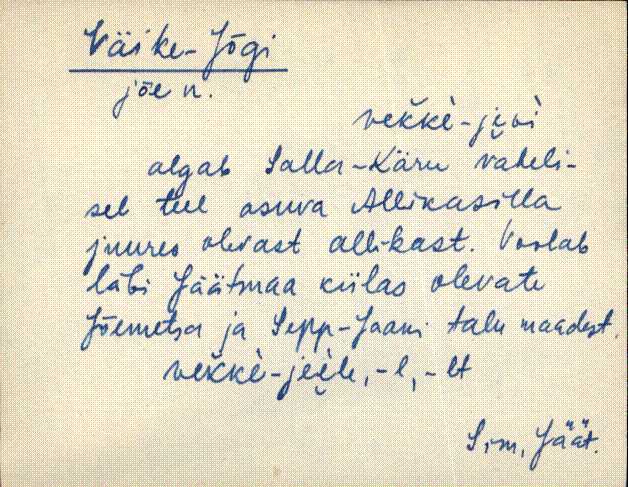 Väike-Jõgi
jõe n.
vekkè-je̮vì
algab Salla-Käru vaheli-
sel teel asuva Allikasilla
juures olevast allikast. Voolab
läbi Jäätmaa külas olevate
Jõemetsa ja Sepp-Jaani talu maadest.
-l, -lt
Sim, Jäät.